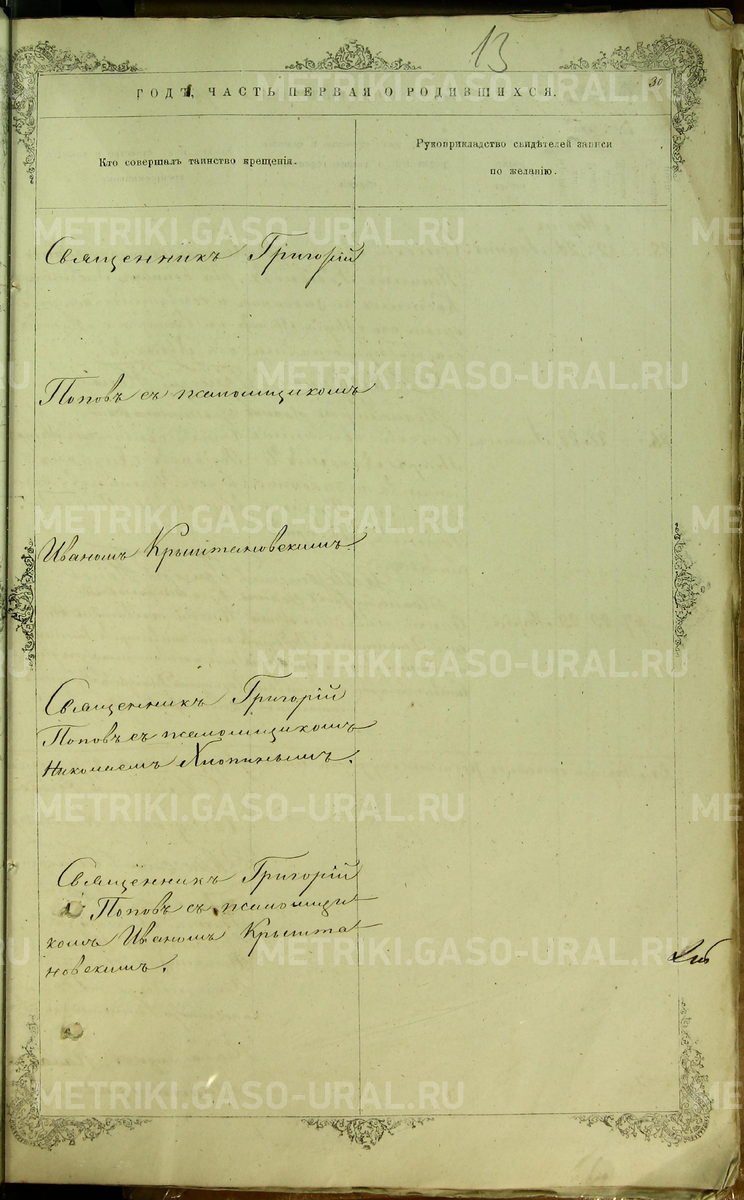 13
30
ГОДЪ, ЧАСТЬ ПЕРВАЯ О РОДИВШИХСЯ.
Кто совершалъ таинство крещенія.
Рукоприкладство свидѣтелей записи
по желанію.
Священникъ Григорій
Поповъ съ псаломщикомъ
Иваномъ Крыштановскимъ.
Священникъ Григорій
Поповъ съ псаломщикомъ
Николаемъ Хлопинымъ.
Священникъ Григорій
Поповъ съ псаломщи-
комъ Иваномъ Крышта-
новскимъ.
METRIKI.GASO-URAL.RU